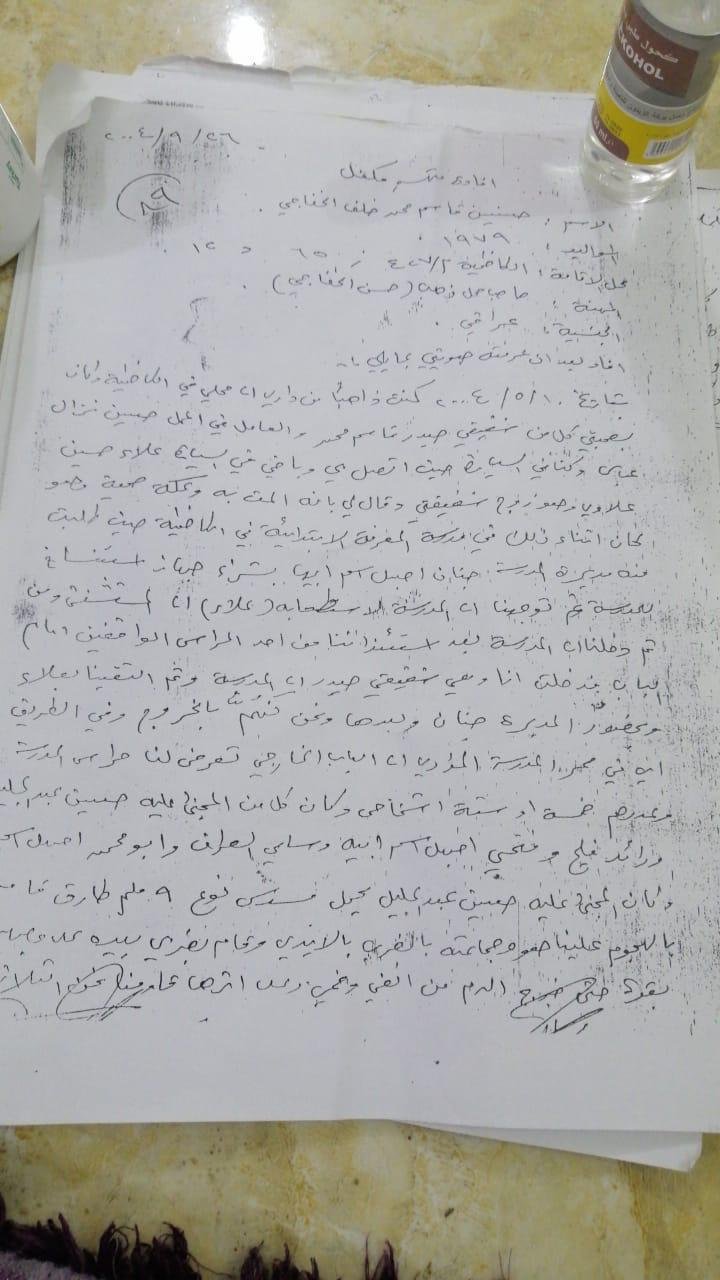 كحول طبي
ALKOHOL
٢٠٠٤/٩/٢٦
افادة متهم مكفل
الاسم : حسنين قاسم محمد خلف الخفاجي .
المواليد : ١٩٧٩ .
محل الاقامة : الكاظمية م/٤٢٧ ز ٦٥ د ١٢ .
المهنة : صاحب محل ذهب (حسن الخفاجي) .
الجنسية : عراقي .
افاد بعد ان عرفته هويتي بما يلي :-
بتاريخ ٢٠٠٤/٥/١٠ كنت ذاهباً من داري الى محلي في الكاظمية وكان
بصحبتي كل من شقيقي حيدر قاسم محمد والعامل في المحل حسين نزال
عباس وكنا في السيارة حيث اتصل بي وانا في السيارة علاء حسين
علاوي وهو زوج شقيقتي وقال لي بانه المت به وعكة صحية وهو
كان اثناء ذلك في مدرسة المعرفة الابتدائية في الكاظمية حيث طلبت
منه مديرة المدرسة جنان اجهل اسم ابيها بشراء جهاز استنساخ
للمدرسة ثم توجهنا الى المدرسة لاصطحابه (علاء) الى المستشفى ومن
ثم دخلنا الى المدرسة بعد استئذاننا من احد الحراس الواقفين امام
الباب فدخلت انا ومعي شقيقي حيدر الى المدرسة وتم التقينا بعلاء
وبحضور المديرة جنان وبعدها ونحن نهم بالخروج وفي الطريق
اي في ممر المدرسة المؤدي الى الباب الخارجي تعرض لنا حراس المدرسة
وعددهم خمسة او ستة اشخاص وكان كل من المجنى عليه حسين عبد الجليل
ورائد فليح و فتحي اجهل اسم ابيه وسامي العراف وابو محمد اجهل
وكان المجنى عليه حسين عبد الجليل يحمل مسدس نوع ٩ ملم طارق
بالهجوم علينا هو وجماعته بالضرب بالايدي وقام بضربي بيده على
بقوة حتى خرج الدم من انفي وفمي وعلى اثرها